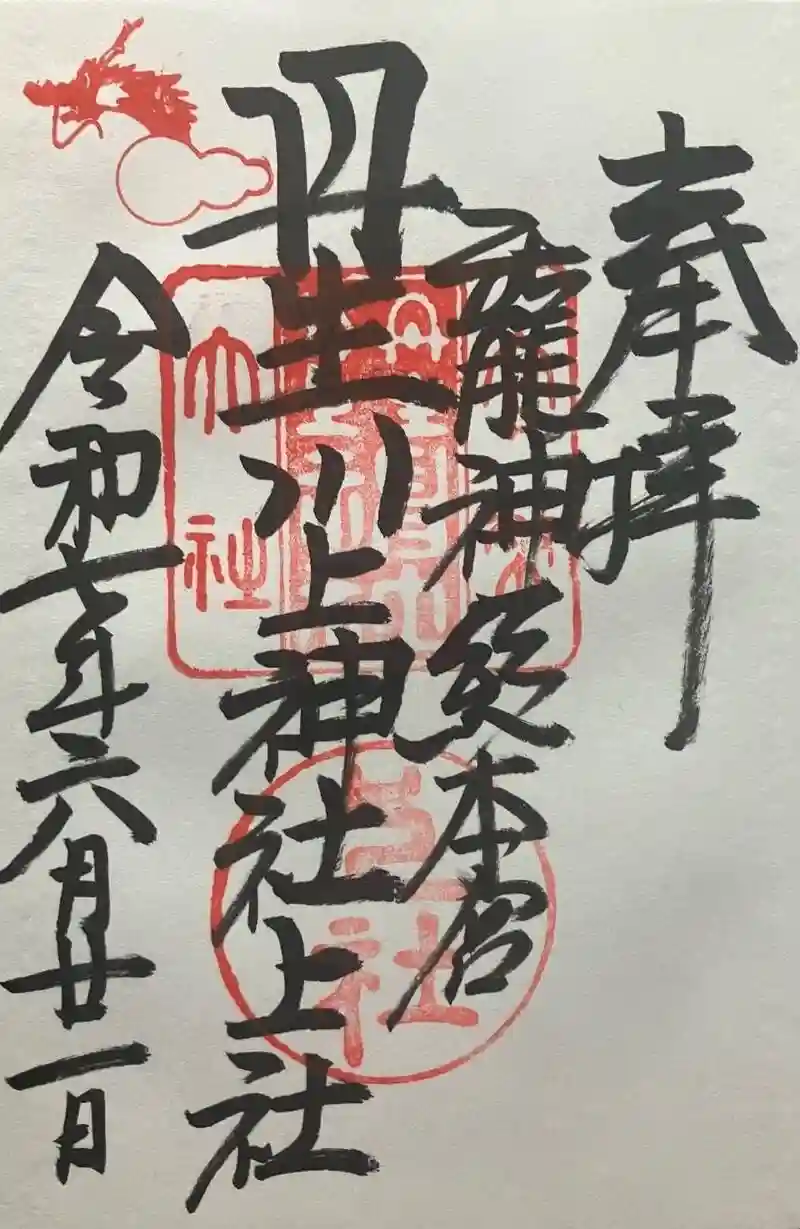 奉拝
龗神総本宮
丹生川上神社上社
令和七年六月廿一日
大社
上社